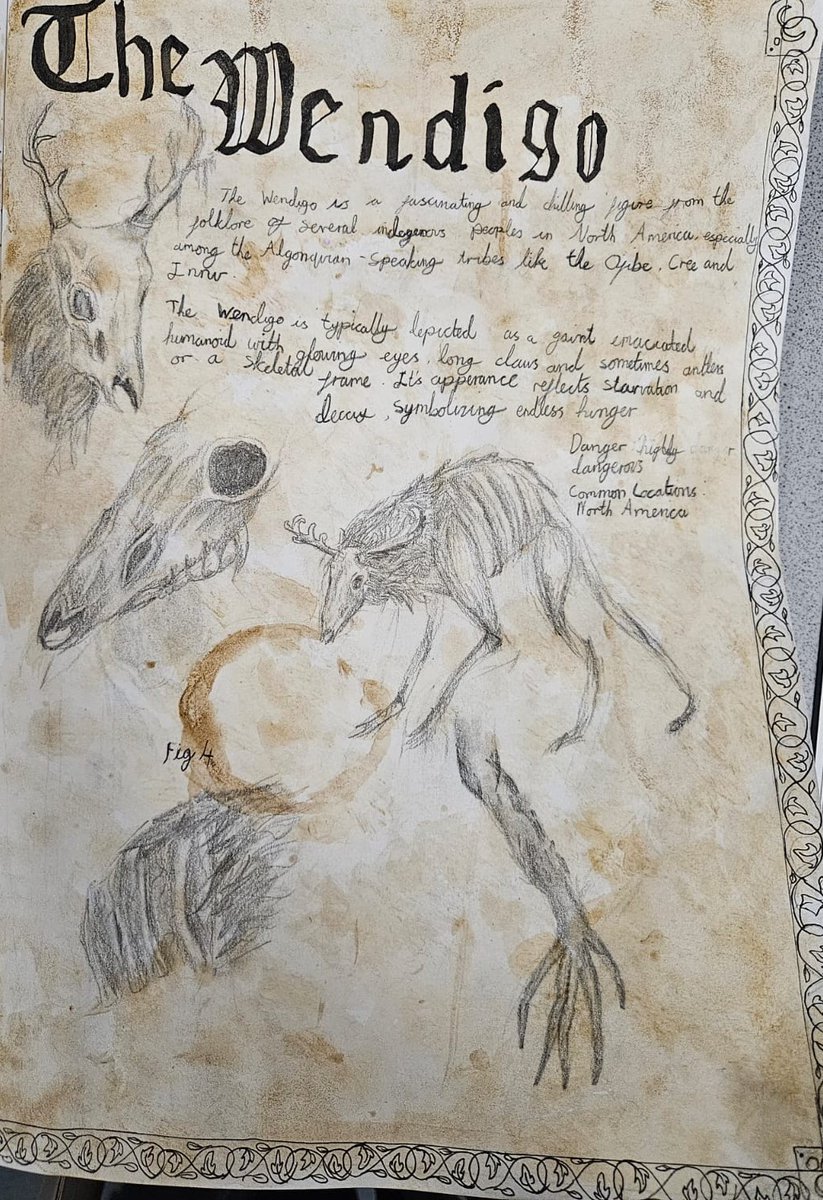 The Wendigo
The Wendigo is a fascinating and chilling figure from the
folklore of several indegenous peoples in North America, especially
among the Algonquian-Speaking tribes like the Ojibe, Cree and
Innu.
The Wendigo is typically depicted as a gaunt emaciated
humanoid with glowing eyes, long claws and sometimes antlers
or a skeletal frame. It's apperance reflects starvation and
decay, symbolizing endless hunger
Danger highly
dangerous
Common Locations.
North America
Fig 4